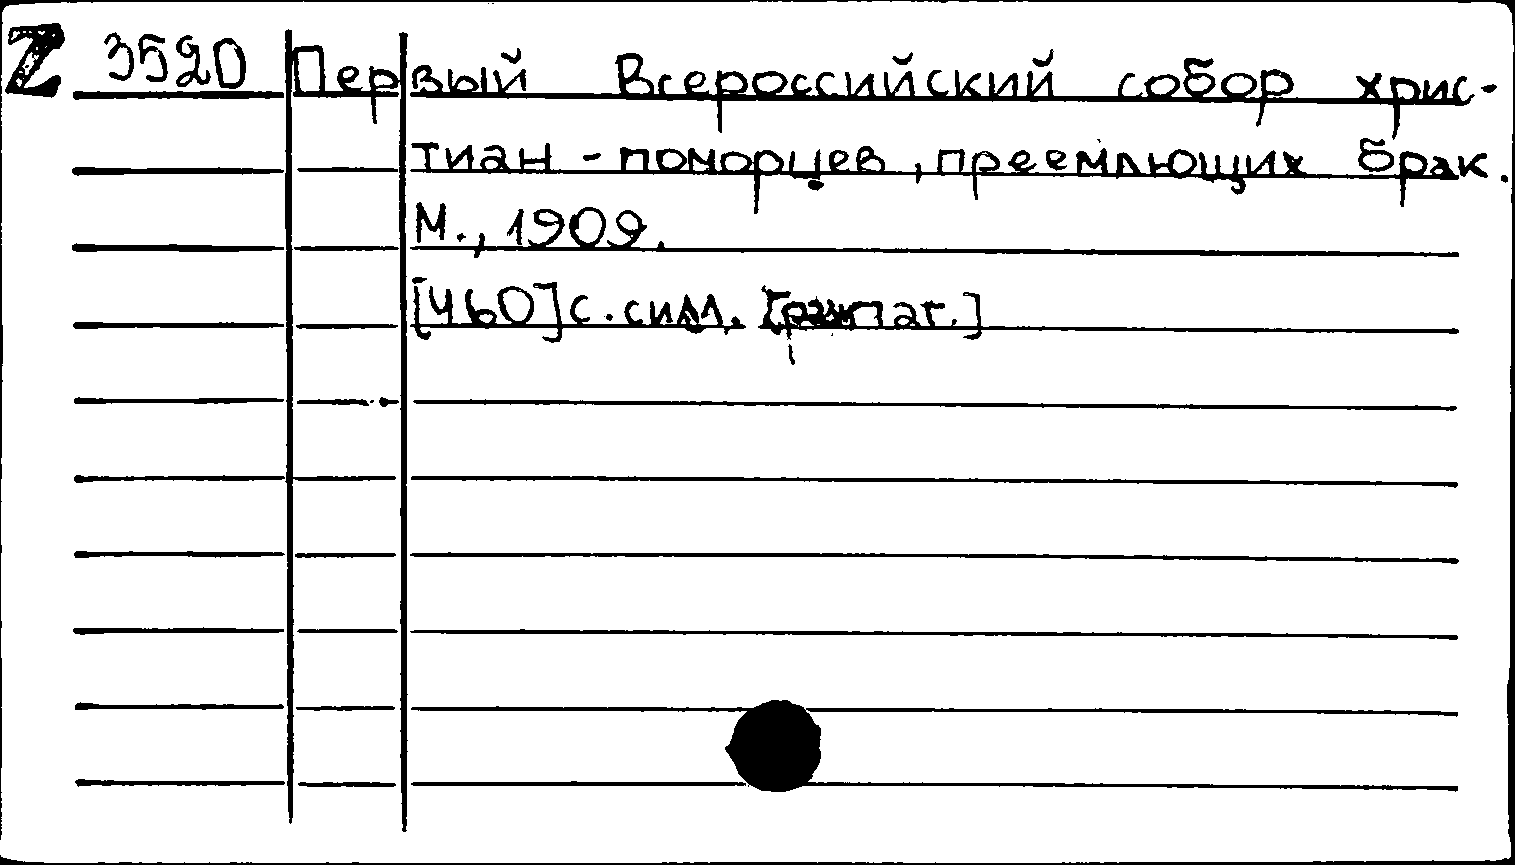 Z 3520 Первый Всероссийский собор хрис-
тиан-поморцев, преемлющих брак.
М., 1909.
[460] с. с илл. [разн паг.]